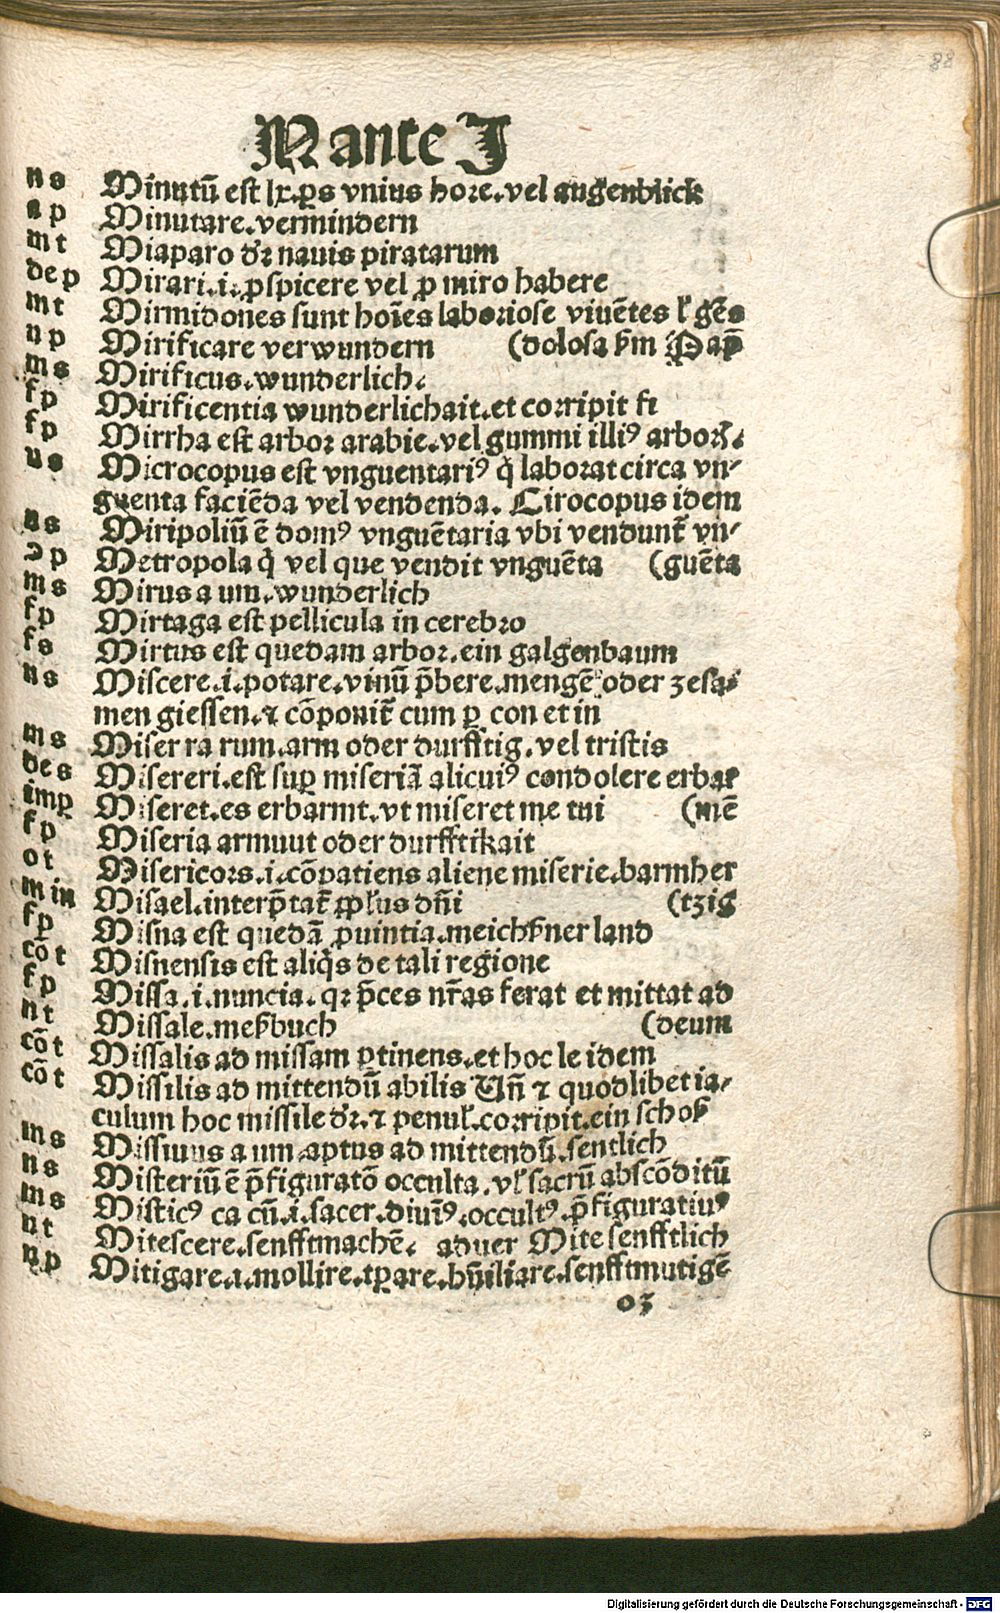 88
M ante J
ns Minutū est lx. ꝑs vnius hore. vel augenblick
a p Minutare. vermindern
m t Miaparo dr̄ nauis piratarum
de p Mirari. i. ꝓspicere vel ꝓ miro habere
m t Mirmidones sunt hoīes laboriose viuētes ł gēs
n p Mirificare verwundern (dolosa ẜm Pap̄
m s Mirificus. wunderlich.
f p Mirificentia wunderlichait. et corripit fi
f p Mirrha est arbor arabie. vel gummi illiꝰ arborꝭ.
us Microcopus est vnguentariꝰ q̇ laborat circa vn⸗
guenta faciēda vel vendenda. Cirocopus idem
ns Miripoliū ē domꝰ vnguētaria vbi vendunt̄ vn⸗
ↄ p Metropola q̇ vel que vendit vnguēta (guēta
m s Mirus a um. wunderlich
f p Mirtaga est pellicula in cerebro
f s Mirtus est quedam arbor. ein galgenbaum
n s Miscere. i. potare. vinū p̄bere. mengē oder zesa⸗
men giessen. ⁊ cōponit̄ cum ꝑ con et in
m s Miser ra rum. arm oder durfftig. vel tristis
de s Misereri. est suꝑ miseriā alicuiꝰ condolere erbar
imꝑ Miseret. es erbarmt. vt miseret me tui (mē
f p Miseria armuut oder durfftikait
o t Misericors. i. cōpatiens aliene miserie. barmher
m in Misael. interp̄tat̄ ꝓpľus dn̄i (tzig
f p Misna est quedā ꝓuintia. meichßner land
cō t Misnensis est aliq̇s de tali regione
f p Missa. i. nuncia. qꝛ p̄ces nr̄as ferat et mittat ad
n t Missale. meßbuch (deum
cō t Missalis ad missam ꝑtinens. et hoc le idem
cō t Missilis ad mittendū abilis Vn̄ ⁊ quodlibet ia⸗
culum hoc missile dr̄. ⁊ penuľ. corripit. ein schoß
m s Missiuus a um aptus ad mittendū. sentlich
n s Misteriū ē p̄figuratō occulta. vľ sacrū abscōditū
m s Misticꝰ ca cū. i. sacer. diuīꝰ. occultꝰ. p̄figuratiuꝰ
n t Mitescere. senfftmachē. aduer Mite senfftlich
n p Mitigare. i. mollire. tꝑare. hūiliare. senfftmutigē
o 3
Digitalisierung gefördert durch die Deutsche Forschungsgemeinschaft - DFG